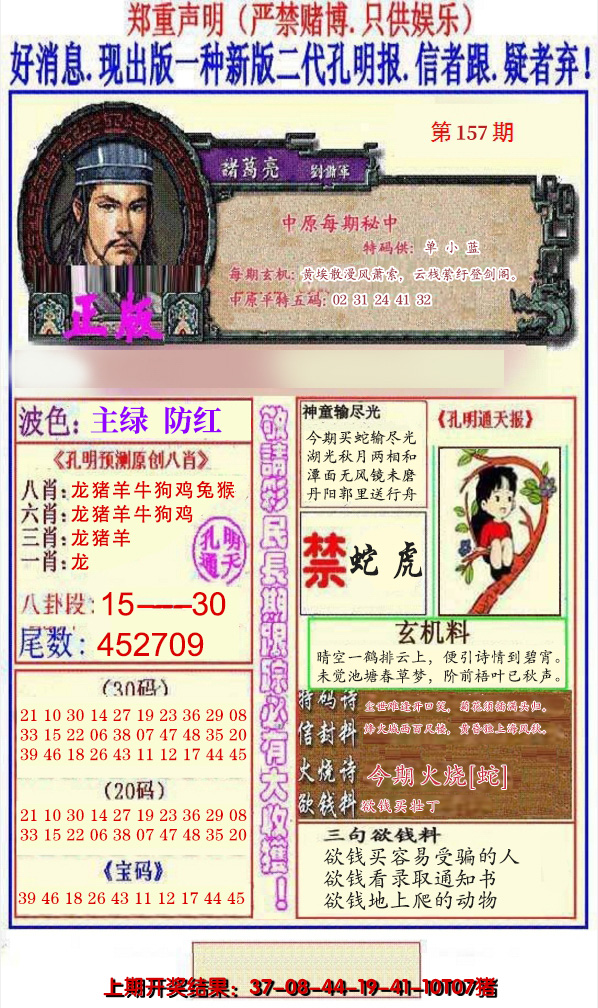 郑重声明（严禁赌博.只供娱乐）
好消息.现出版一种新版二代孔明报.信者跟.疑者弃！
第157期
諸葛亮 劉備軍
中原每期秘中
特码供：单小蓝
每期玄机：黄埃散漫风萧索，云栈萦纡登剑阁。
中原平特五码：02 31 24 41 32
正版
波色：主绿 防红
《孔明预测原创八肖》
八肖：龙猪羊牛狗鸡兔猴
六肖：龙猪羊牛狗鸡
三肖：龙猪羊
一肖：龙
孔明
通天
八卦段：15——30
尾数：452709
（30码）
21 10 30 14 27 19 23 36 29 08
33 15 22 06 38 07 47 48 35 20
39 46 18 26 43 11 12 17 44 45
（20码）
21 10 30 14 27 19 23 36 29 08
33 15 22 06 38 07 47 48 35 20
《宝码》
39 46 18 26 43 11 12 17 44 45
敬請彩民長期跟踪必有大收獲！
神童输尽光
今期买蛇输尽光
湖光秋月两相和
潭面无风镜未磨
丹阳郭里送行舟
《孔明通天报》
禁 蛇 虎
玄机料
晴空一鹤排云上，便引诗情到碧霄。
未觉池塘春草梦，阶前梧叶已秋声。
特码诗 尘世难逢开口笑，菊花须插满头归。
信封料 烽火城西百尺楼，黄昏独上海风秋。
火烧诗 今期火烧[蛇]
欲钱料 欲钱买壮丁
三句欲钱料
欲钱买容易受骗的人
欲钱看录取通知书
欲钱地上爬的动物
上期开奖结果：37-08-44-19-41-10T07猪